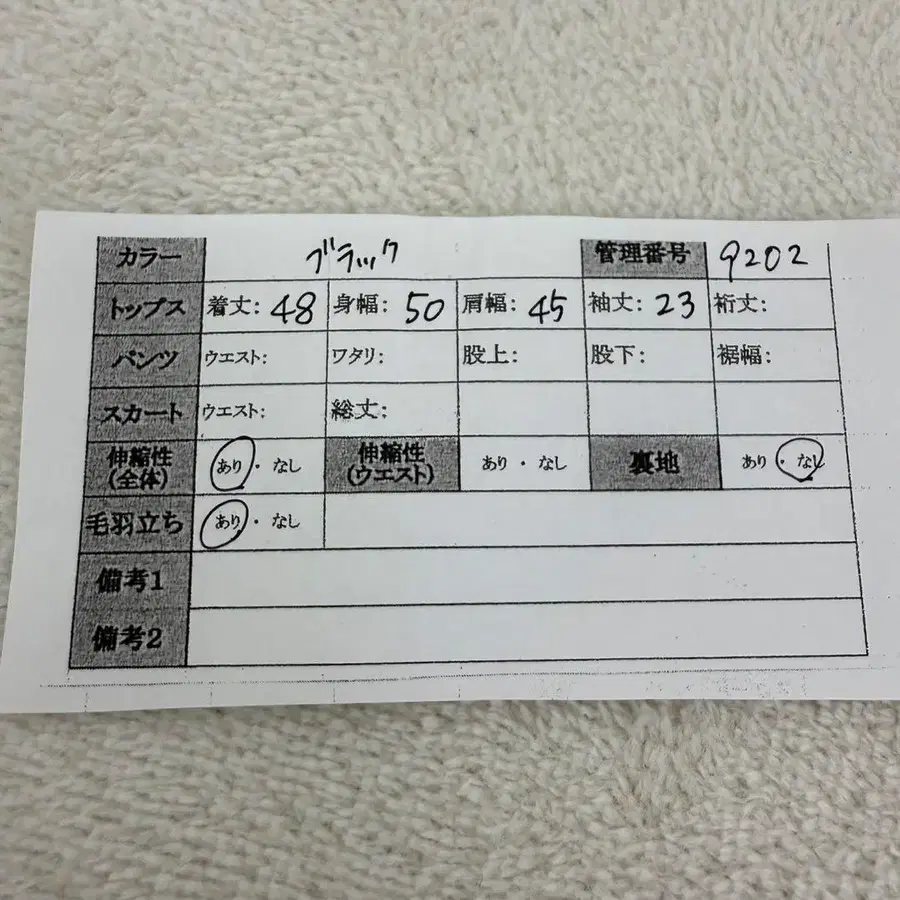 カラー ブラック 管理番号 9202
トップス 着丈: 48 身幅: 50 肩幅: 45 袖丈: 23 裄丈:
パンツ ウエスト: ワタリ: 股上: 股下: 裾幅:
スカート ウエスト: 総丈:
伸縮性 伸縮性
(全体) あり・なし (ウエスト) あり・なし 裏地 あり・なし
毛羽立ち あり・なし
備考1
備考2